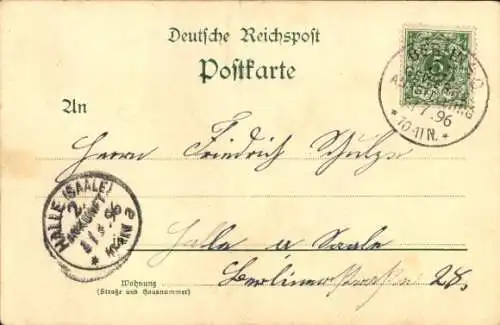 Deutsche Reichspost
Postkarte
5
BERLIN
AUSSTELLUNG
7.96
10-11 N.
An
Herrn Friedrich Schulze
HALLE (SAALE)
ANKUNFT
Halle a Saale
Wohnung
Berlinerstrasse 28.
(Straße und Hausnummer)